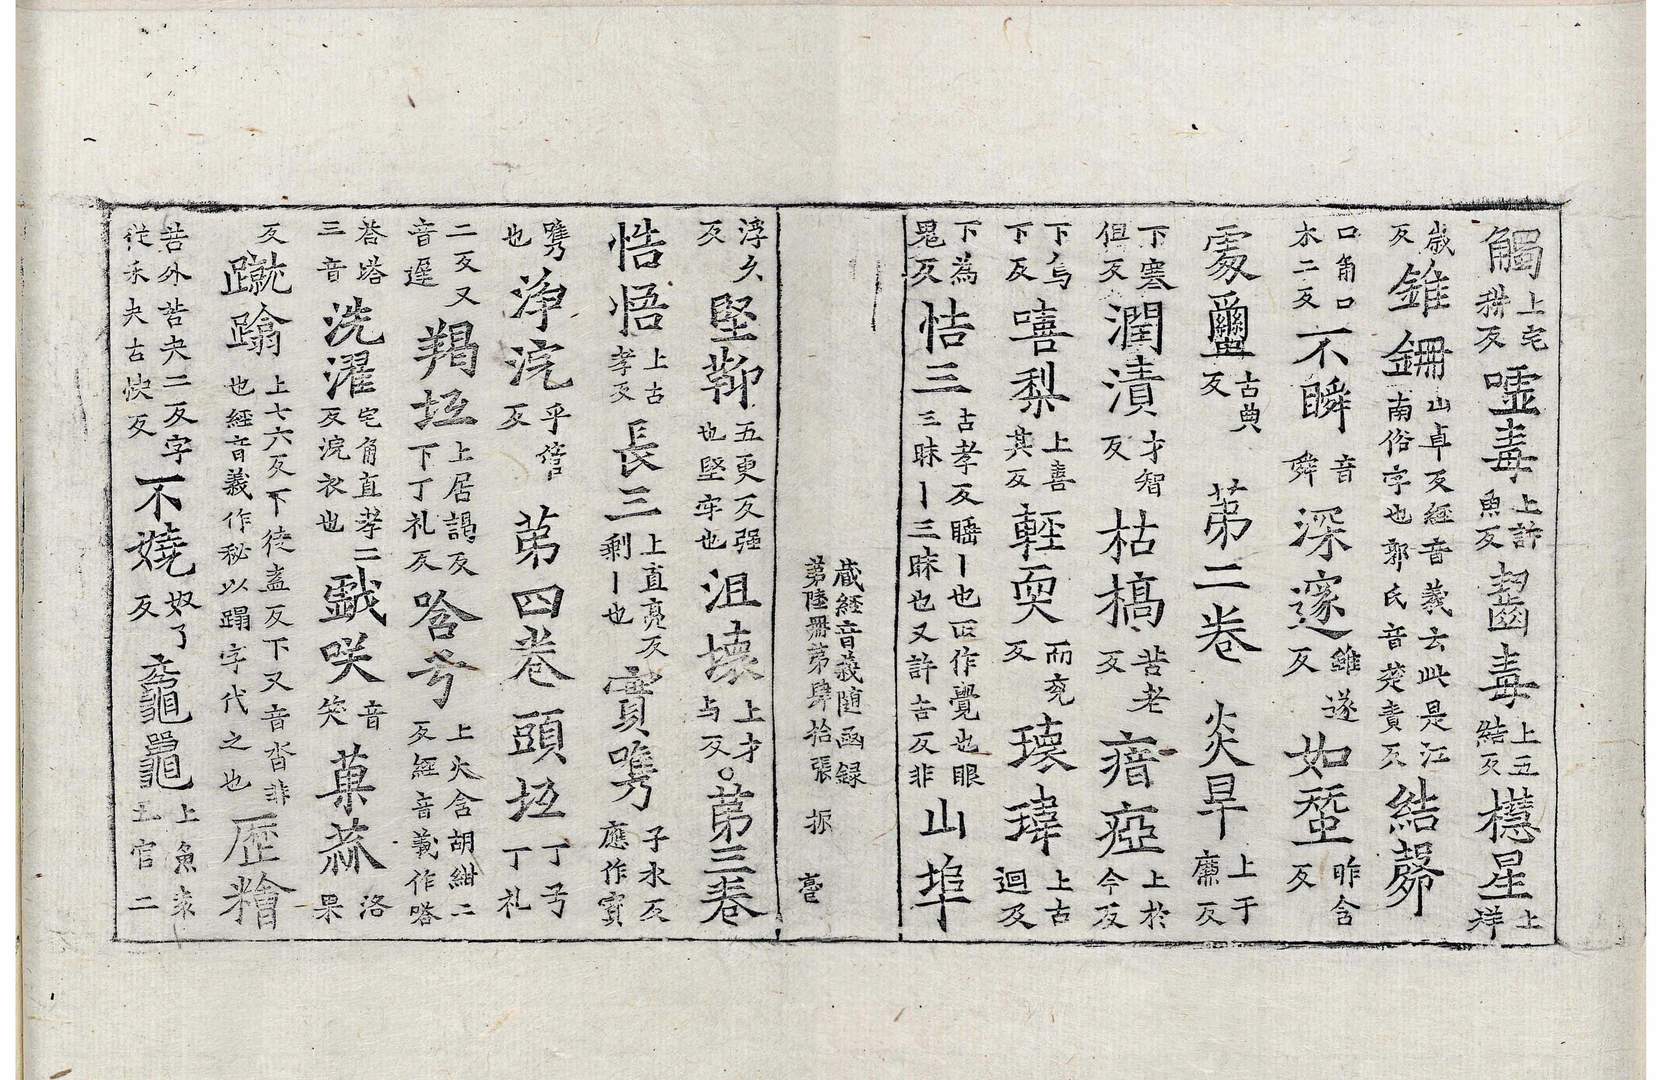 觸上宅𧣾反嘘毒上許魚反齧毒上五結反橂星上垟
歲反錐鉚山卓反經音義云此是江南俗字也郭氏音楚責反結髾
口角口木二反不瞬音舜深邃雖遂反如蝅昨含反
䨱𧆑古典反第二卷炎旱上于廉反
下寒但反潤漬才智反枯槁苦老反瘖瘂上於今反
下烏下反嘻梨上喜其反輕耎而兖反瓌瑋上古迴反
下為鬼反悎三古孝反睡丨也正作覺也眼三昧丨三昧也又許吉反非山埠
藏經音義隨函録
第陸冊第肆拾張 振
浮久反堅鞕五更反强也堅牢也沮壞上才与反第三卷
悎悟上古孝反長三上直亮反剩丨也實嘋子水反應作寳
嘋也淨浣乎管反第四卷頭坘丁弓丁礼
二反又音遲羯坘上居謁反下丁礼反唅兮上火含胡紺二反經音義作嗒
荅塔三音洗濯宅角直孝二反浣衣也戯咲音笑菓蓏洛果
反蹴蹹上七六反下徒盍反下又音沓非也經音義作秘以蹋字代之也𠪱䊒
苦外苦夬二反字從禾夬古快反不嬈奴了反黿鼉上魚袁五官二